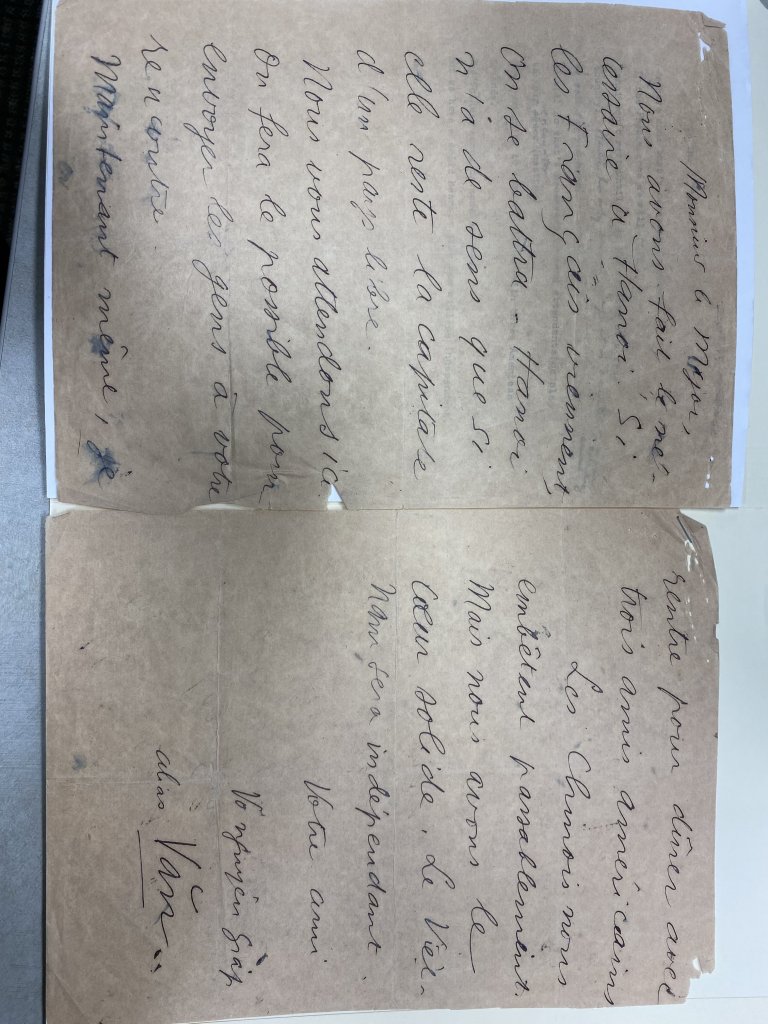 Monsieur le Major,
Nous avons fait le né-
cessaire à Hanoi. Si
les Français viennent,
on se battra - Hanoi
n'a de sens que si
elle reste la capitale
d'un pays libre.
Nous vous attendons ici.
On fera le possible pour
envoyer les gens à votre
rencontre.
Maintenant même, je
rentre pour dîner avec
trois amis américains
Les Chinois nous
embêtent passablement.
Mais nous avons le
cœur solide. Le Viêt-
Nam sera indépendant.
Votre ami
Vo nguyên Giáp
alias Văn